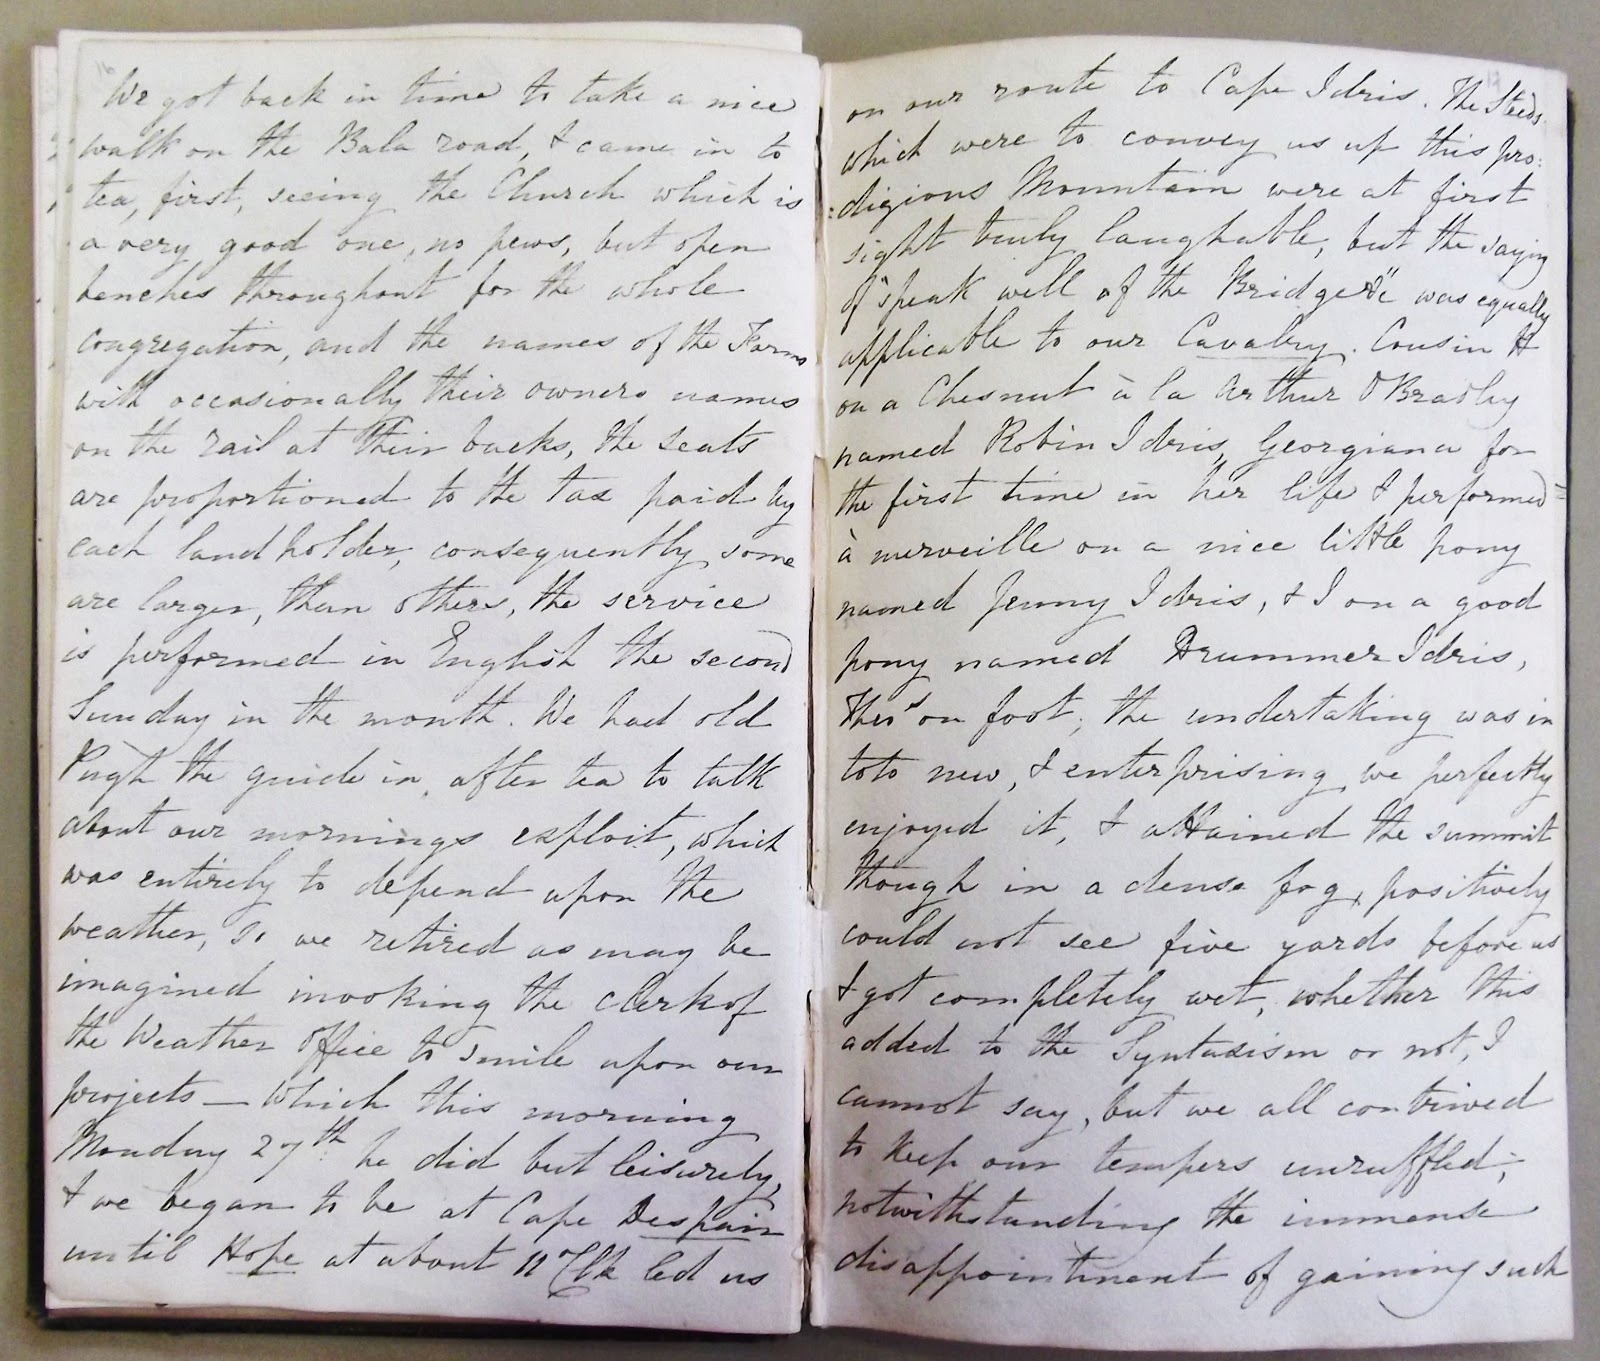 16
We got back in time to take a nice
walk on the Bala road, & came in to
tea, first, seeing the Church which is
a very good one, no pews, but open
benches throughout for the whole
congregation, and the names of the Farms
with occasionally their owners names
on the rail at their backs, the seats
are proportioned to the tax paid by
each landholder, consequently some
are larger, than others, the service
is performed in English the second
Sunday in the month. We had old
Pugh the guide in, after tea to talk
about our mornings exploit, which
was entirely to depend upon the
weather, so we retired as may be
imagined invoking the Clerk of
the Weather Office to smile upon our
projects — which this morning
Monday 27th he did but leisurely,
& we began to be at Cape Despair
until Hope at about 11 Clk led us
17
on our route to Cape Idris. The Steeds
which were to convey us up this pro:
:digious Mountain were at first
sight truly laughable, but the saying
of "speak well of the Bridge &c" was equally
applicable to our Cavalry. Cousin H
on a Chesnut à la Arthur O'Bradley
named Robin Idris, Georgiana for
the first time in her life & performed
à merveille on a nice little pony
named Jenny Idris, & I on a good
pony named Drummer Idris,
on foot; the undertaking was in
toto new, & enterprising, we perfectly
enjoyed it, & attained the summit
though in a dense fog, positively
could not see five yards before us
& got completely wet, whether this
added to the Syntaxism or not, I
cannot say, but we all contrived
to keep our tempers unruffled;
notwithstanding the immense
disappointment of gaining such